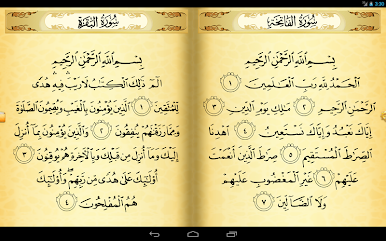 3:30
سُورَةُ الفَاتِحَةِ
بِسْمِ اللَّهِ الرَّحْمَٰنِ الرَّحِيمِ
الْحَمْدُ لِلَّهِ رَبِّ الْعَٰلَمِينَ ١
الرَّحْمَٰنِ الرَّحِيمِ ٢ مَٰلِكِ يَوْمِ الدِّينِ ٣
إِيَّاكَ نَعْبُدُ وَإِيَّاكَ نَسْتَعِينُ ٤ اهْدِنَا
الصِّرَٰطَ الْمُسْتَقِيمَ ٥ صِرَٰطَ الَّذِينَ أَنْعَمْتَ
عَلَيْهِمْ ٦ غَيْرِ الْمَغْضُوبِ عَلَيْهِمْ
وَلَا الضَّالِّينَ ٧
سُورَةُ البَقَرَةِ
بِسْمِ اللَّهِ الرَّحْمَٰنِ الرَّحِيمِ
الٓمٓ ذَٰلِكَ الْكِتَٰبُ لَا رَيْبَ فِيهِ هُدًى
لِلْمُتَّقِينَ ١ الَّذِينَ يُؤْمِنُونَ بِالْغَيْبِ وَيُقِيمُونَ الصَّلَوٰةَ
وَمِمَّا رَزَقْنَٰهُمْ يُنْفِقُونَ ٢ وَالَّذِينَ يُؤْمِنُونَ بِمَا أُنْزِلَ
إِلَيْكَ وَمَا أُنْزِلَ مِنْ قَبْلِكَ وَبِالْآخِرَةِ هُمْ يُوقِنُونَ ٣
أُولَٰئِكَ عَلَىٰ هُدًى مِنْ رَبِّهِمْ وَأُولَٰئِكَ
هُمُ الْمُفْلِحُونَ ٤